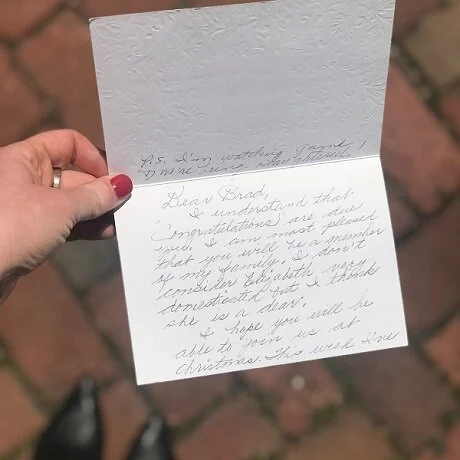 P.S. I'm watching Game
being slaughtered!
Dear Brad,
I understand that
"Congratulations" are due
you. I am most pleased
that you will be a member
of my family. I don't
consider Elizabeth very
domesticated but I think
she is a dear.
I hope you will be
able to join us at
Christmas. This week I've